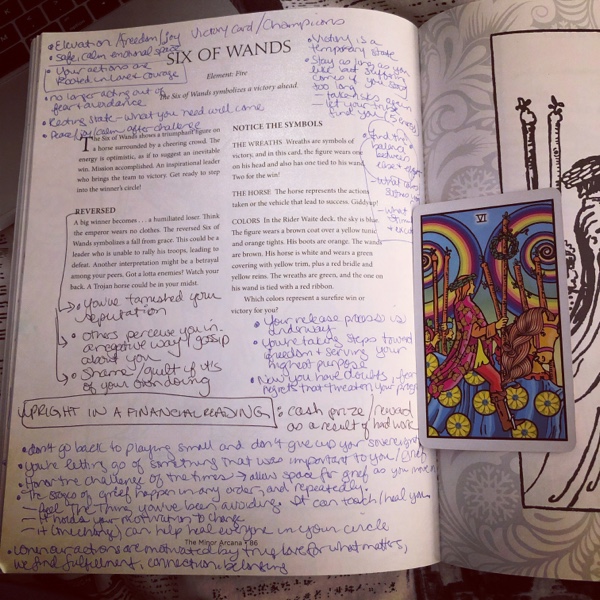 Victory Card/Champions
• Elevation/Freedom/Joy
• safe, calm emotional space
• Your actions are
rooted in love + courage
• no longer acting out of
fear + avoidance
• Resting state - what you need will come
• Peace/joy/calm after challenge
SIX OF WANDS
Element: Fire
The Six of Wands symbolizes a victory ahead.
The Six of Wands shows a triumphant figure on
a horse surrounded by a cheering crowd. The
energy is optimistic, as if to suggest an inevitable
win. Mission accomplished. An inspirational leader
who brings the team to victory. Get ready to step
into the winner's circle!
REVERSED
A big winner becomes . . . a humiliated loser. Think
the emperor wears no clothes. The reversed Six of
Wands symbolizes a fall from grace. This could be a
leader who is unable to rally his troops, leading to
defeat. Another interpretation might be a betrayal
among your peers. Got a lotta enemies? Watch your
back. A Trojan horse could be in your midst.
• You've tarnished your
reputation
• Others perceive you in
a negative way/gossip
about you
• Shame/guilt if it's
of your own doing
NOTICE THE SYMBOLS
THE WREATHS Wreaths are symbols of
victory, and in this card, the figure wears one
on his head and also has one tied to his wand.
Two for the win!
THE HORSE The horse represents the actions
taken or the vehicle that lead to success. Giddyup!
COLORS In the Rider Waite deck, the sky is blue.
The figure wears a brown coat over a yellow tunic
and orange tights. His boots are orange. The wands
are brown. His horse is white and wears a green
covering with yellow trim, plus a red bridle and
yellow reins. The wreaths are green, and the one on
his wand is tied with a red ribbon.
Which colors represent a surefire win or
victory for you?
• Victory is a
temporary state
• Stay as long as you
like but suffering
comes if you stay
too long
• find the
balance
between
• Your release process is
underway
• You're taking steps toward
freedom + serving your
highest purpose
• Now you have doubts, fears,
regrets that threaten your
UPRIGHT IN A FINANCIAL READING: cash prize/reward
as a result of hard work
• don't go back to playing small and don't give up your sovereignty
• You're letting go of something that was important to you/grief
• Honor the challenge of the times → allow space for grief as you move on
• The stages of grief happen in any order, and repeatedly.
— feel the thing you've been avoiding. It can teach/heal you
— it holds your motivation to change
— it can help heal everyone in your circle
• When our actions are motivated by true love for what matters,
we find fulfillment, connection, belonging
The Minor Arcana 86
VI